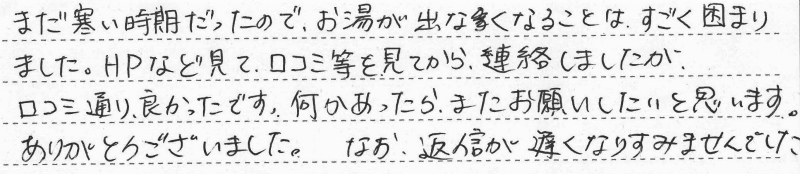 まだ寒い時期だったので、お湯が出なくなることは、すごく困まり
ました。HPなど見て、口コミ等を見てから、連絡しましたが、
口コミ通り、良かったです。何かあったら、またお願いしたいと思います。
ありがとうございました。 なお、返信が遅くなりすみませんでした